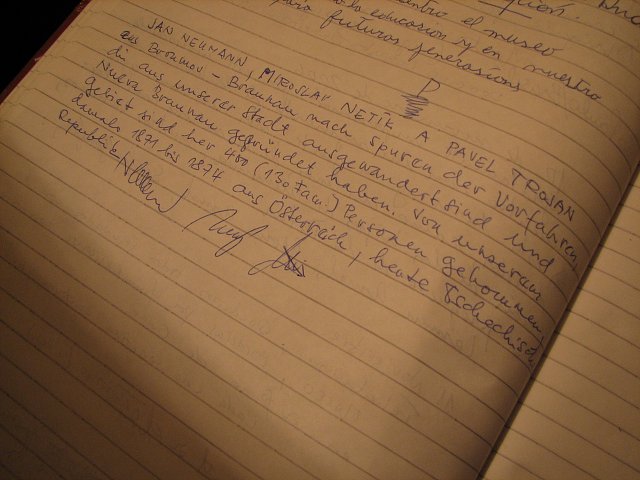 ntro el museo
lo la educasion y en nuestro
para futuras generasions
D
JAN NEUMANN, MIROSLAV NETÍK A PAVEL TROJAN
aus BROUMOV - Braunau nach spuren der Vorfahren,
di aus unserer Stadt ausgewandert sind und
Nueva Braunau gefründet haben. Von unserem
gebiet sind her 400 (130 Fam.) Personen gekommen,
damals 1871 bis 1874 aus Österreich, heute Tschechische
Republik